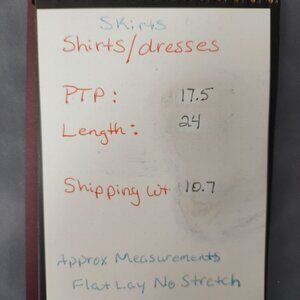 SKirts
Shirts/dresses
PTP: 17.5
Length: 24
Shipping wt 10.7
Approx Measurements
Flat Lay No Stretch